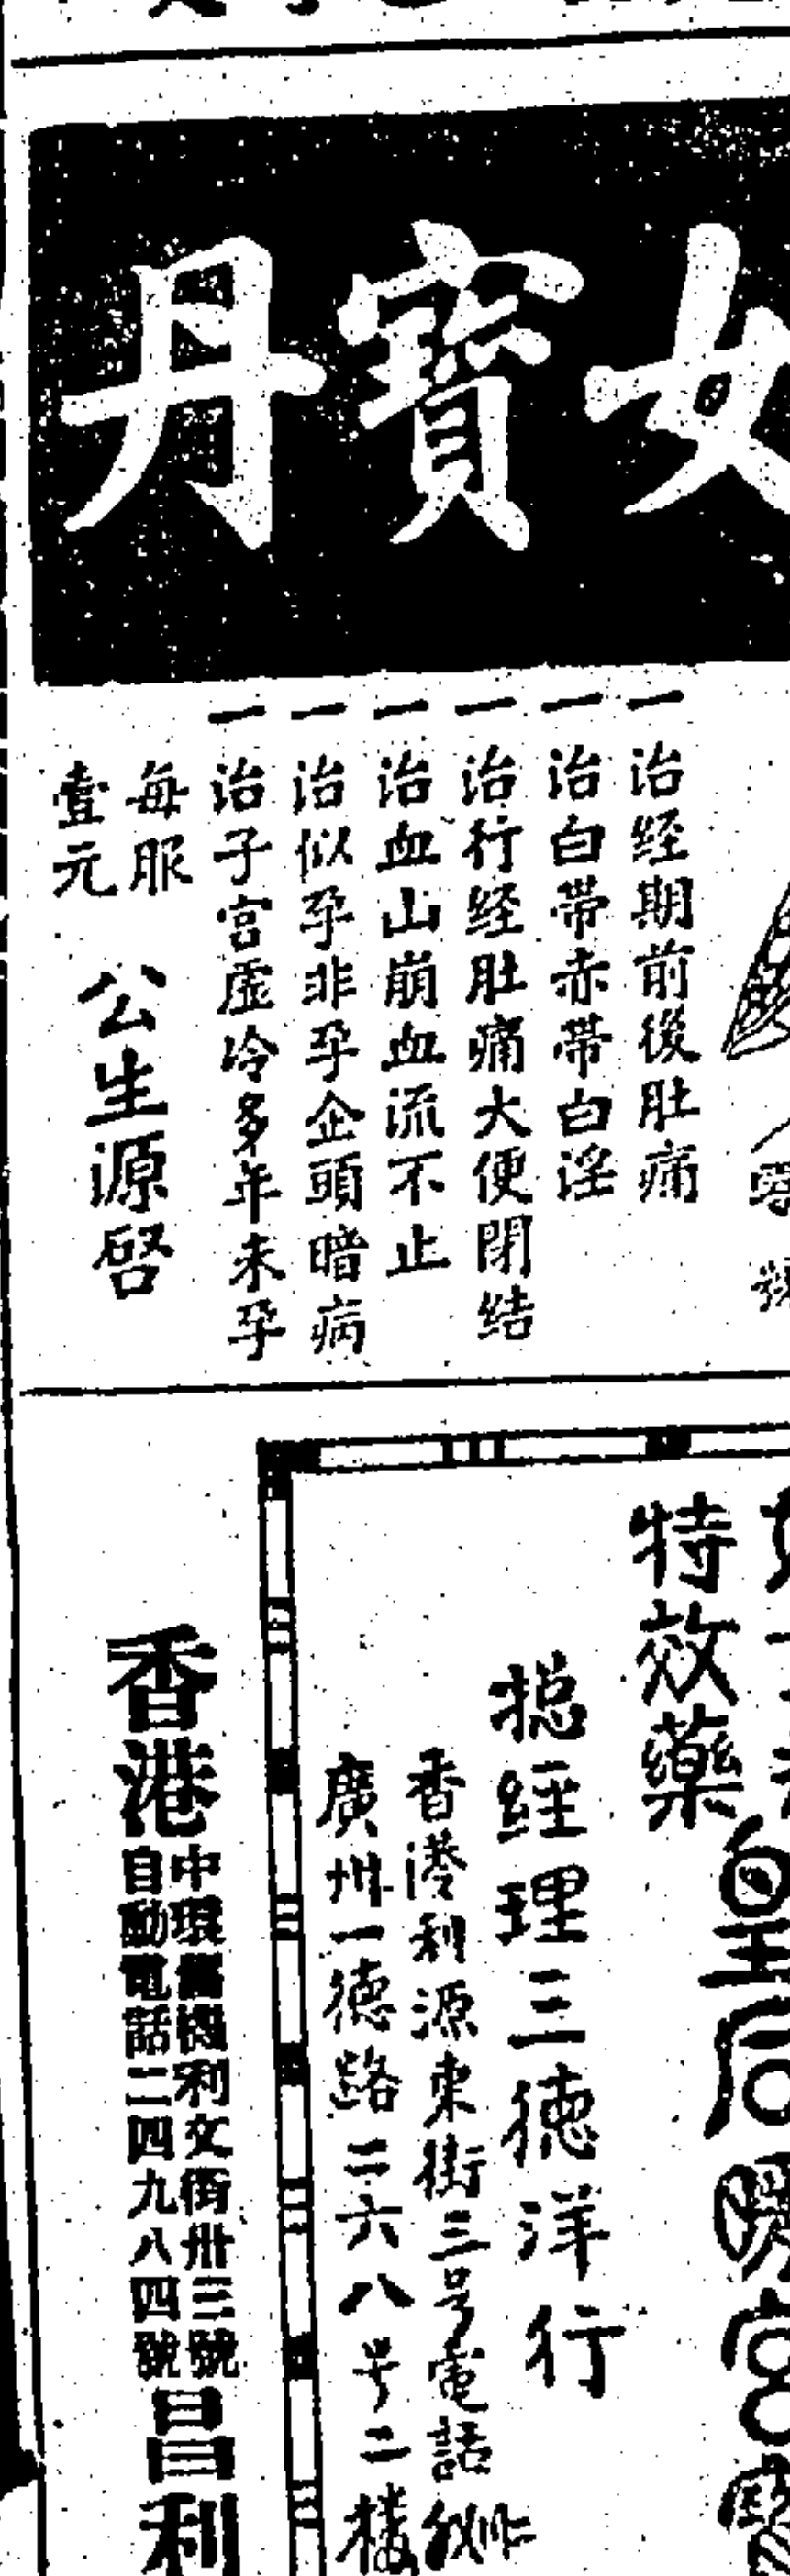 女寶丹
一治經期前後肚痛
一治白帶赤帶白淫
一治行經肚痛大便閉結
一治血山崩血流不止
一治似孕非孕企頭暗病
一治子宮虛冷多年未孕
每服
壹元
公生源啓
特效藥
皇后暖宮寳
揔經理三德洋行
香港利源東街三号電話
廣州一德路二六八号二楼
香港
中環機利文街卅三號
自動電話二四九八四號
昌利